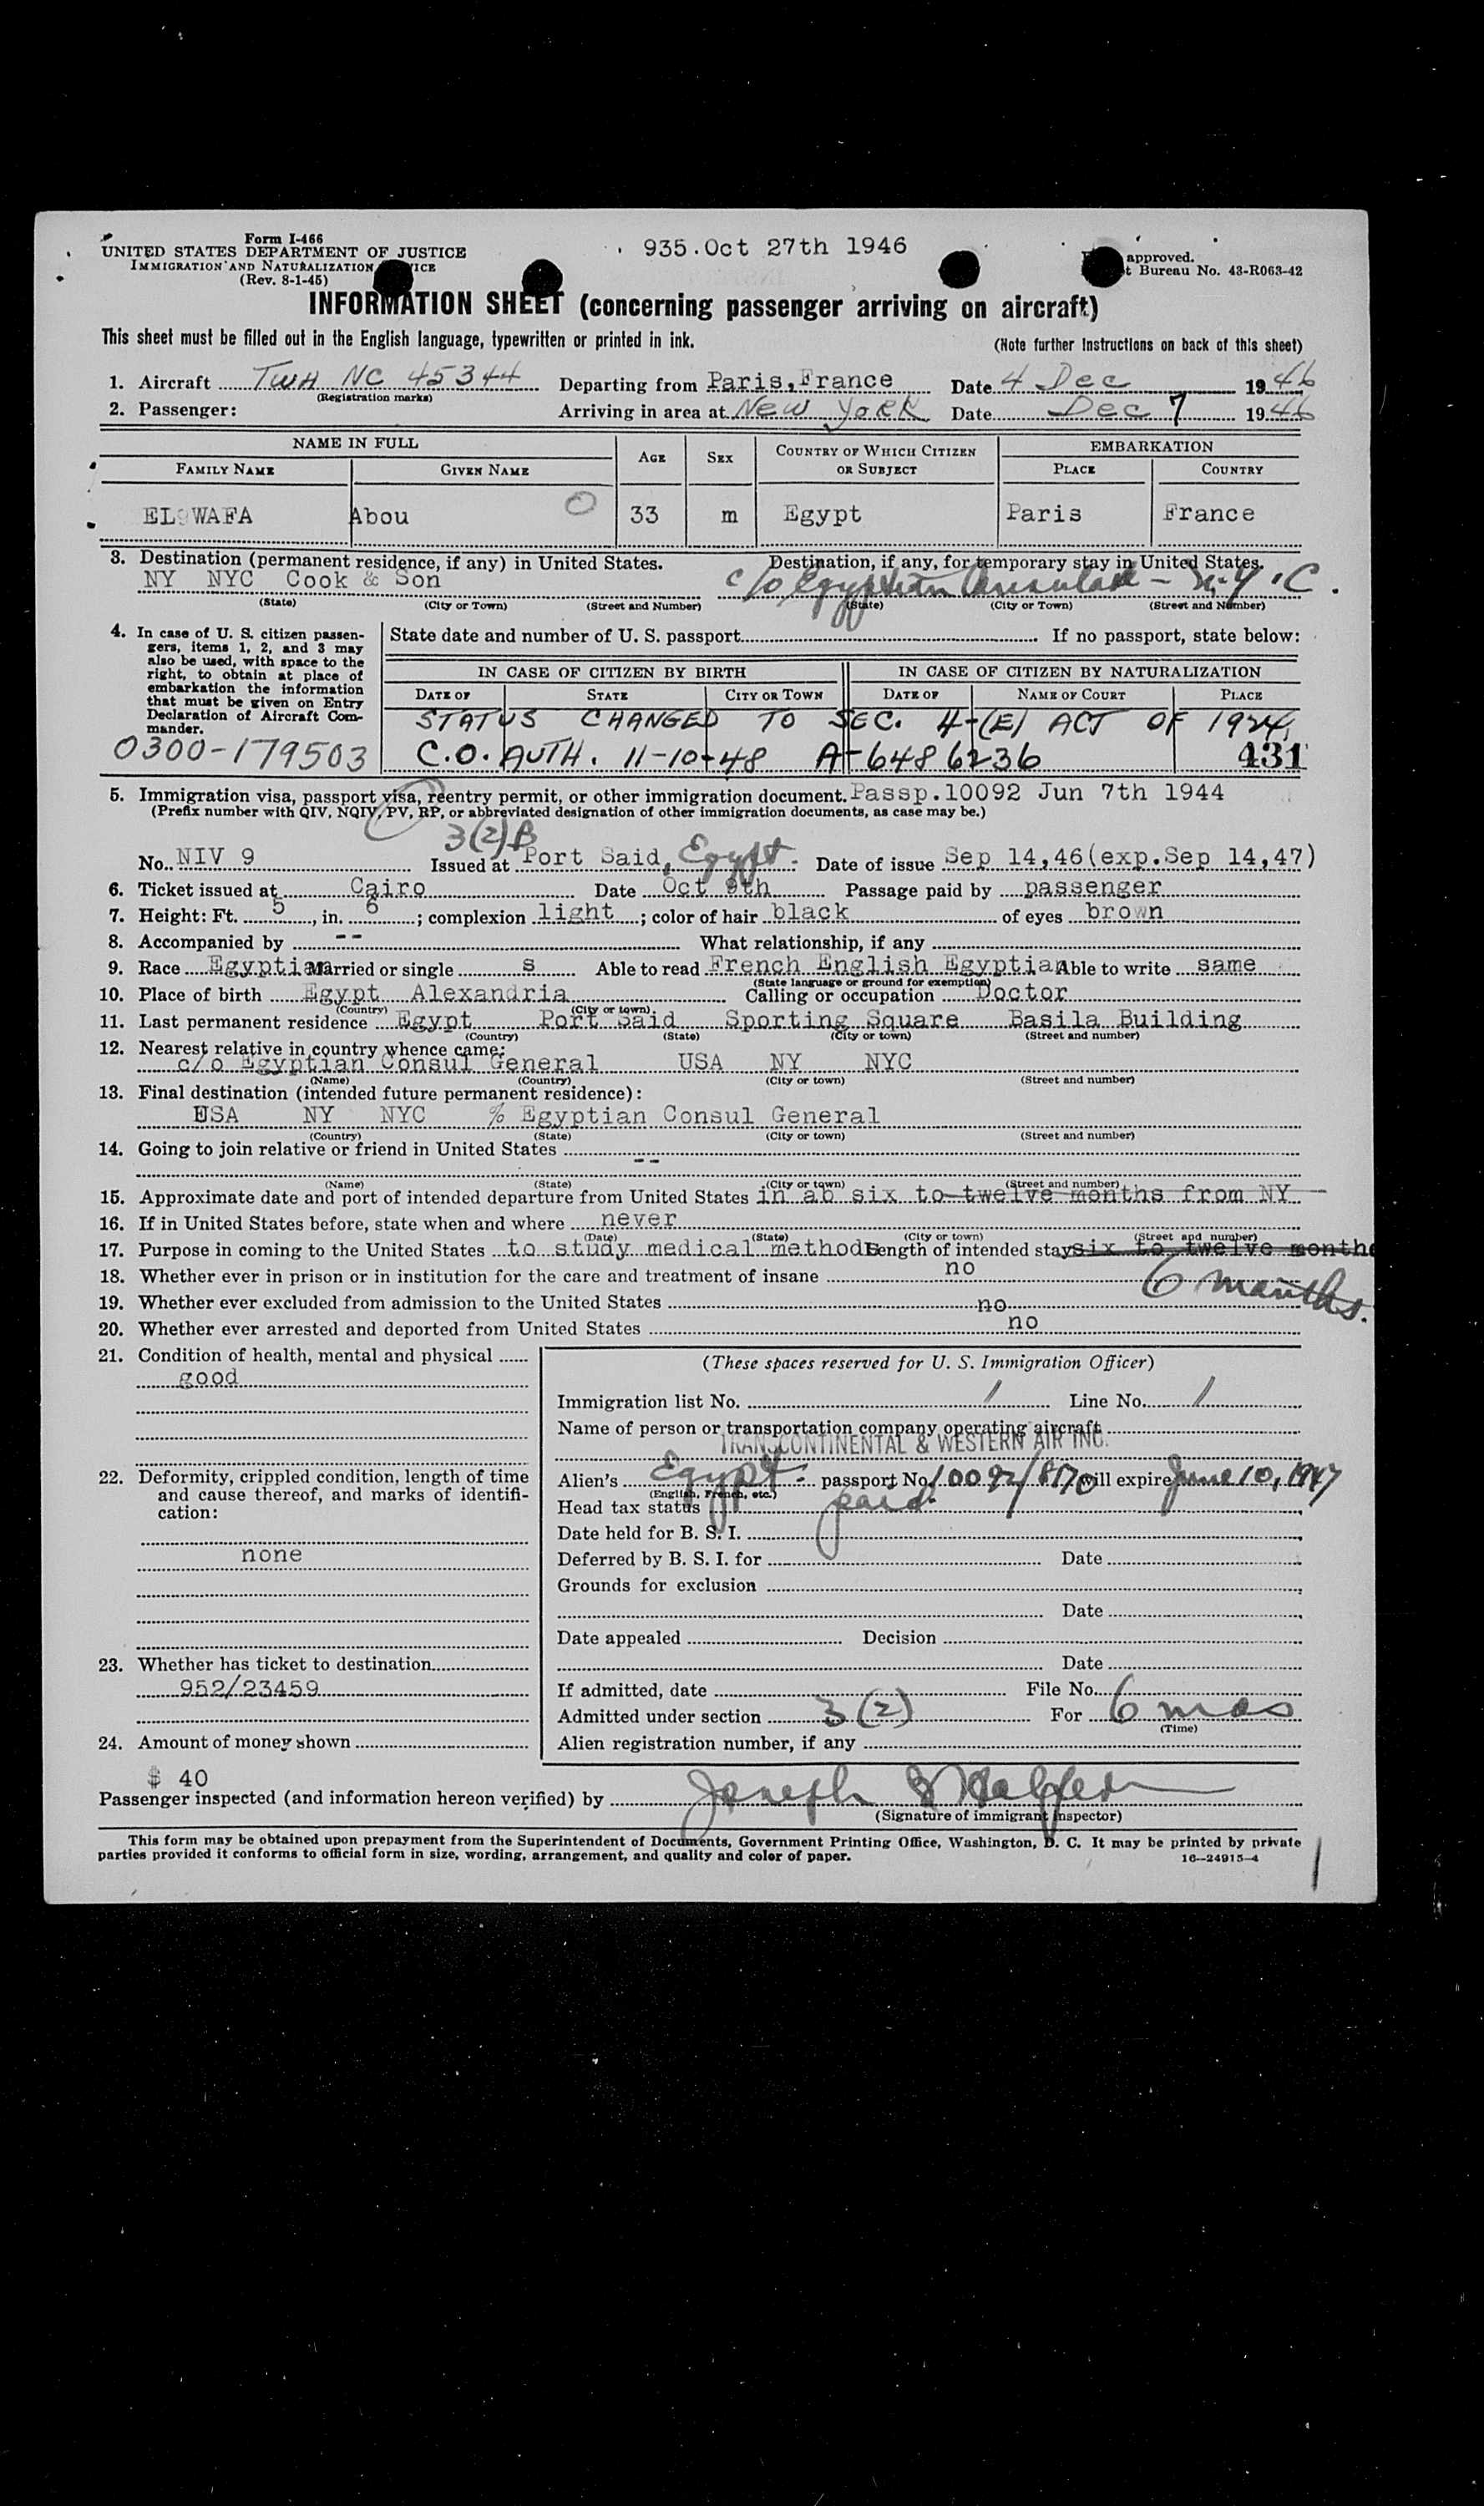 Form I-466
UNITED STATES DEPARTMENT OF JUSTICE
IMMIGRATION AND NATURALIZATION
(Rev. 8-1-45)
935.Oct 27th 1946
approved.
Bureau No. 43-R063-42
INFORMATION SHEET (concerning passenger arriving on aircraft)
This sheet must be filled out in the English language, typewritten or printed in ink.
(Note further instructions on back of this sheet)
1. Aircraft TWA NC 45344 Departing from Paris, France Date 4 Dec 1946
(Registration marks)
2. Passenger: Arriving in area at New York Date Dec 7 1946
NAME IN FULL AGE SEX COUNTRY OF WHICH CITIZEN OR SUBJECT EMBARKATION
FAMILY NAME GIVEN NAME PLACE COUNTRY
EL WAFA Abou O 33 m Egypt Paris France
3. Destination (permanent residence, if any) in United States. Destination, if any, for temporary stay in United States.
NY NYC Cook & Son c/o Egyptian Consulate - N.Y.C.
(State) (City or Town) (Street and Number) (State) (City or Town) (Street and Number)
4. In case of U. S. citizen passengers, items 1, 2, and 3 may also be used, with space to the right, to obtain at place of embarkation the information that must be given on Entry Declaration of Aircraft Commander.
State date and number of U. S. passport If no passport, state below:
IN CASE OF CITIZEN BY BIRTH IN CASE OF CITIZEN BY NATURALIZATION
DATE OF STATE CITY OR TOWN DATE OF NAME OF COURT PLACE
STATUS CHANGED TO SEC. 4-(E) ACT OF 1924,
0300-179503 C.O. AUTH. 11-10-48 A-6486236 431
5. Immigration visa, passport visa, reentry permit, or other immigration document. Passp.10092 Jun 7th 1944
(Prefix number with QIV, NQIV, PV, RP, or abbreviated designation of other immigration documents, as case may be.)
3(2)B
No. NIV 9 Issued at Port Said, Egypt. Date of issue Sep 14,46(exp.Sep 14,47)
6. Ticket issued at Cairo Date Oct 9th Passage paid by passenger
7. Height: Ft. 5, in. 6; complexion light; color of hair black of eyes brown
8. Accompanied by -- What relationship, if any
9. Race Egyptian Married or single s Able to read French English Egyptian Able to write same
(State language or ground for exemption)
10. Place of birth Egypt Alexandria Calling or occupation Doctor
(Country) (City or town)
11. Last permanent residence Egypt Port Said Sporting Square Basila Building
(Country) (State) (City or town) (Street and number)
12. Nearest relative in country whence came:
c/o Egyptian Consul General USA NY NYC
(Name) (Country) (City or town) (Street and number)
13. Final destination (intended future permanent residence):
USA NY NYC % Egyptian Consul General
(Country) (State) (City or town) (Street and number)
14. Going to join relative or friend in United States
--
(Name) (State) (City or town) (Street and number)
15. Approximate date and port of intended departure from United States in ab six to twelve months from NY
16. If in United States before, state when and where never
(Date) (State) (City or town) (Street and number)
17. Purpose in coming to the United States to study medical methods Length of intended stay six to twelve months
18. Whether ever in prison or in institution for the care and treatment of insane no
6 months.
19. Whether ever excluded from admission to the United States no
20. Whether ever arrested and deported from United States no
21. Condition of health, mental and physical
good
22. Deformity, crippled condition, length of time and cause thereof, and marks of identification:
none
23. Whether has ticket to destination
952/23459
24. Amount of money shown
$ 40
(These spaces reserved for U. S. Immigration Officer)
Immigration list No. 1 Line No. 1
Name of person or transportation company operating aircraft
TRANSCONTINENTAL & WESTERN AIR INC.
Alien's Egypt. passport No. 10092/8170 will expire June 10, 1947
(English, French, etc.)
Head tax status paid.
Date held for B. S. I.
Deferred by B. S. I. for Date
Grounds for exclusion
Date
Date appealed Decision
Date
If admitted, date File No.
Admitted under section 3(2) For 6 mos
(Time)
Alien registration number, if any
Passenger inspected (and information hereon verified) by Joseph
(Signature of immigrant inspector)
This form may be obtained upon prepayment from the Superintendent of Documents, Government Printing Office, Washington, D. C. It may be printed by private
parties provided it conforms to official form in size, wording, arrangement, and quality and color of paper.
16-24915-4